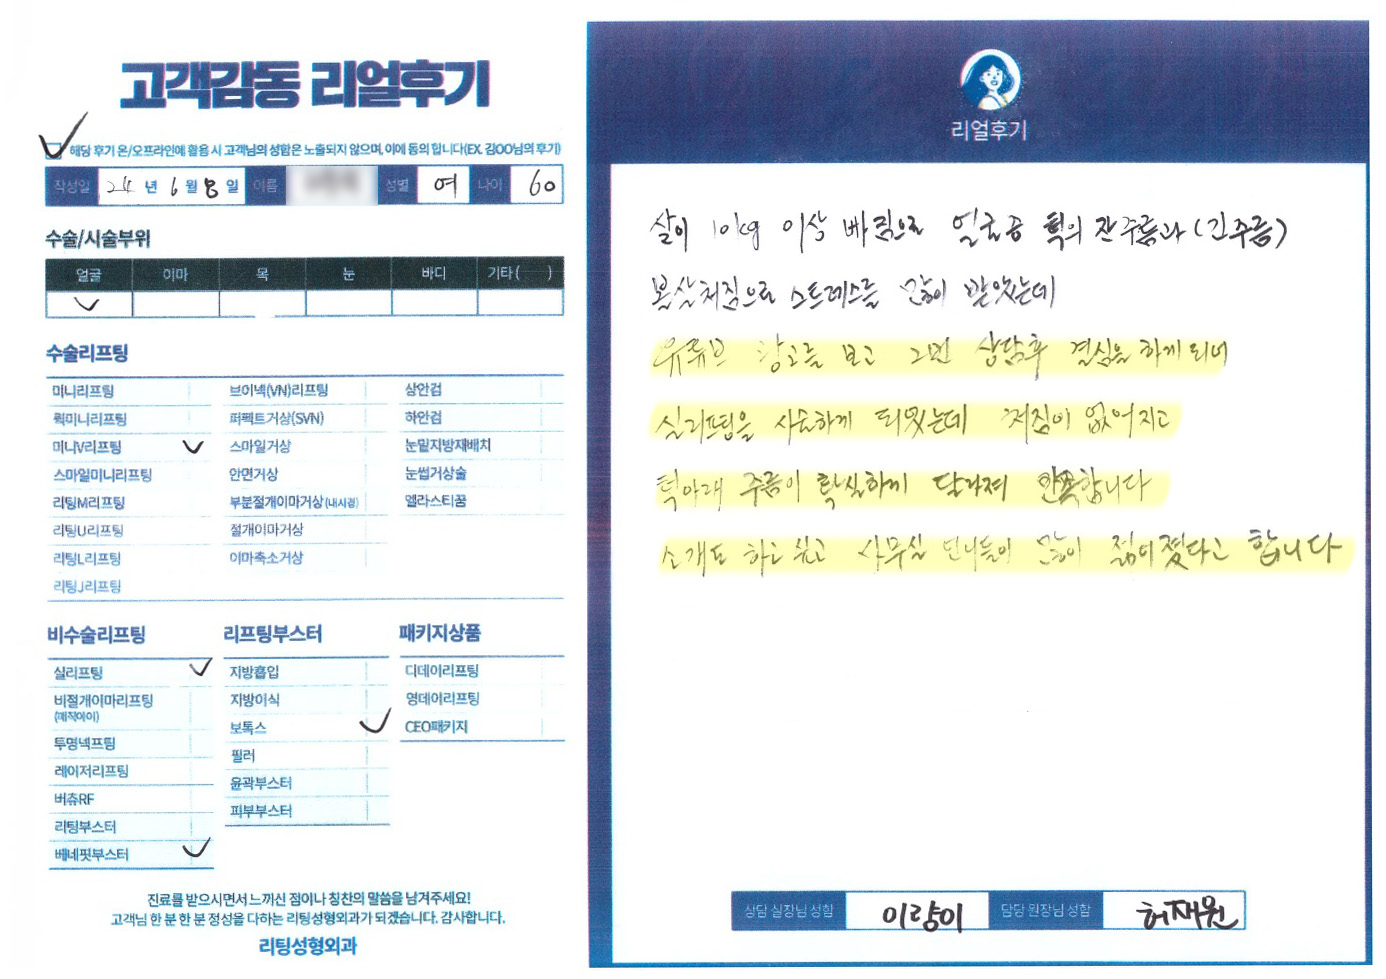 고객감동 리얼후기
해당 후기 온/오프라인에 활용 시 고객님의 성함은 노출되지 않으며, 이에 동의 합니다(EX. 김OO님의 후기)
작성일 24 년 6 월 8 일 이름 성별 여 나이 60
수술/시술부위
얼굴 이마 목 눈 바디 기타( )
수술리프팅
미니리프팅 브이넥(VN)리프팅 상안검
퀵미니리프팅 퍼펙트거상(SVN) 하안검
미니V리프팅 스마일거상 눈밑지방재배치
스마일미니리프팅 안면거상 눈썹거상술
리팅M리프팅 부분절개이마거상(내시경) 엘라스티꿈
리팅U리프팅 절개이마거상
리팅L리프팅 이마축소거상
리팅J리프팅
비수술리프팅 리프팅부스터 패키지상품
실리프팅 지방흡입 디데이리프팅
비절개이마리프팅 지방이식 영데이리프팅
(매직아이) 보톡스 CEO패키지
투명넥프팅 필러
레이저리프팅 윤곽부스터
버츄RF 피부부스터
리팅부스터
베네핏부스터
진료를 받으시면서 느끼신 점이나 칭찬의 말씀을 남겨주세요!
고객님 한 분 한 분 정성을 다하는 리팅성형외과가 되겠습니다. 감사합니다.
리팅성형외과
리얼후기
살이 10kg 이상 빠짐으로 얼굴공 턱의 잔주름과 (긴주름)
볼살처짐으로 스트레스를 많이 받았는데
유튜브 광고를 보고 그면 상담후 결심을 하게 되어
실리프팅을 시술하게 되었는데 처짐이 없어지고
턱아래 주름이 확실하게 달라져 만족합니다
소개도 하고 싶고 사무실 언니들이 많이 젊어졌다고 합니다
상담 실장님 성함 이랑이 담당 원장님 성함 허재원